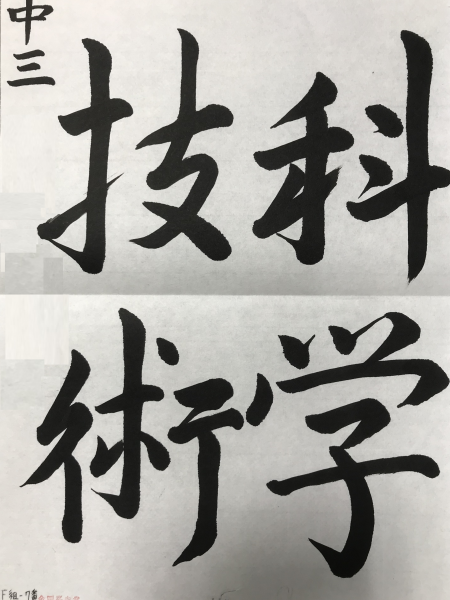 科学
技術
中三
F組-7番